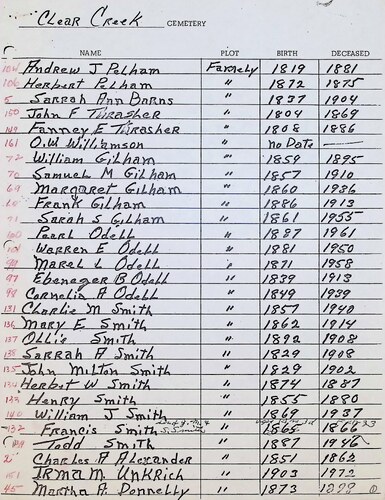 Clear Creek CEMETERY
NAME PLOT BIRTH DECEASED
104 Andrew J Pelham Family 1819 1881
106 Herbert Pelham " 1872 1875
5 Sarrah Ann Barns " 1837 1904
150 John F Thrasher " 1804 1869
149 Fanney E Thrasher " 1808 1886
161 O.W. Williamson " no Date —
72 William Gilham " 1859 1895
70 Samuel M Gilham " 1857 1910
69 Margaret Gilham " 1860 1936
Frank Gilham " 1886 1913
71 Sarah S Gilham " 1861 1955
100 Pearl Odell " 1887 1961
101 Warren E Odell " 1881 1950
Marel L Odell " 1871 1958
97 Ebenager B Odell " 1839 1913
98 Cornelia A Odell " 1849 1939
131 Charlie M Smith " 1857 1940
136 Mary E Smith " 1862 1914
137 Ollie Smith " 1892 1908
138 Sarrah A Smith " 1829 1908
135 John Milton Smith " 1829 1902
134 Herbert W Smith " 1874 1887
133 Henry Smith " 1855 1880
140 William J Smith " 1869 1937
132 Francis Smith " 1865 1866
139 Todd Smith " 1887 1946
2 Charles A Alexander " 1851 1862
151 Irma M Unkrich " 1903 1972
45 Martha A Donnelly " 1873 1899